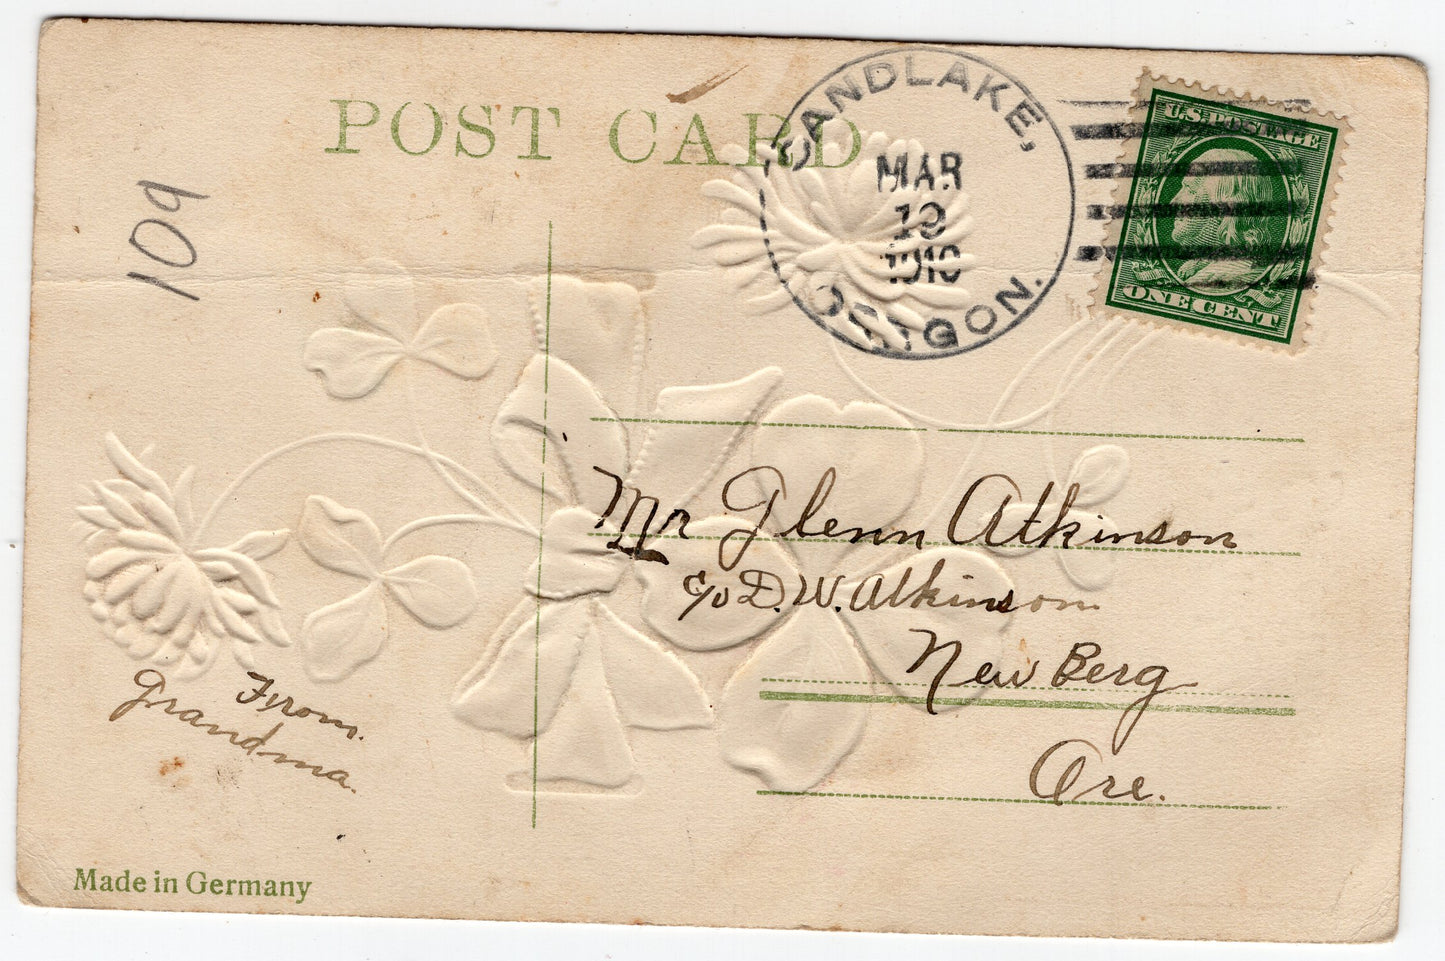 POST CARD
SANDLAKE,
MAR
19
1910
OREGON.
U.S. POSTAGE
ONE CENT
109
Mr Glenn Atkinson
c/o D. W. Atkinson
New Berg
Ore.
From.
Grandma.
Made in Germany